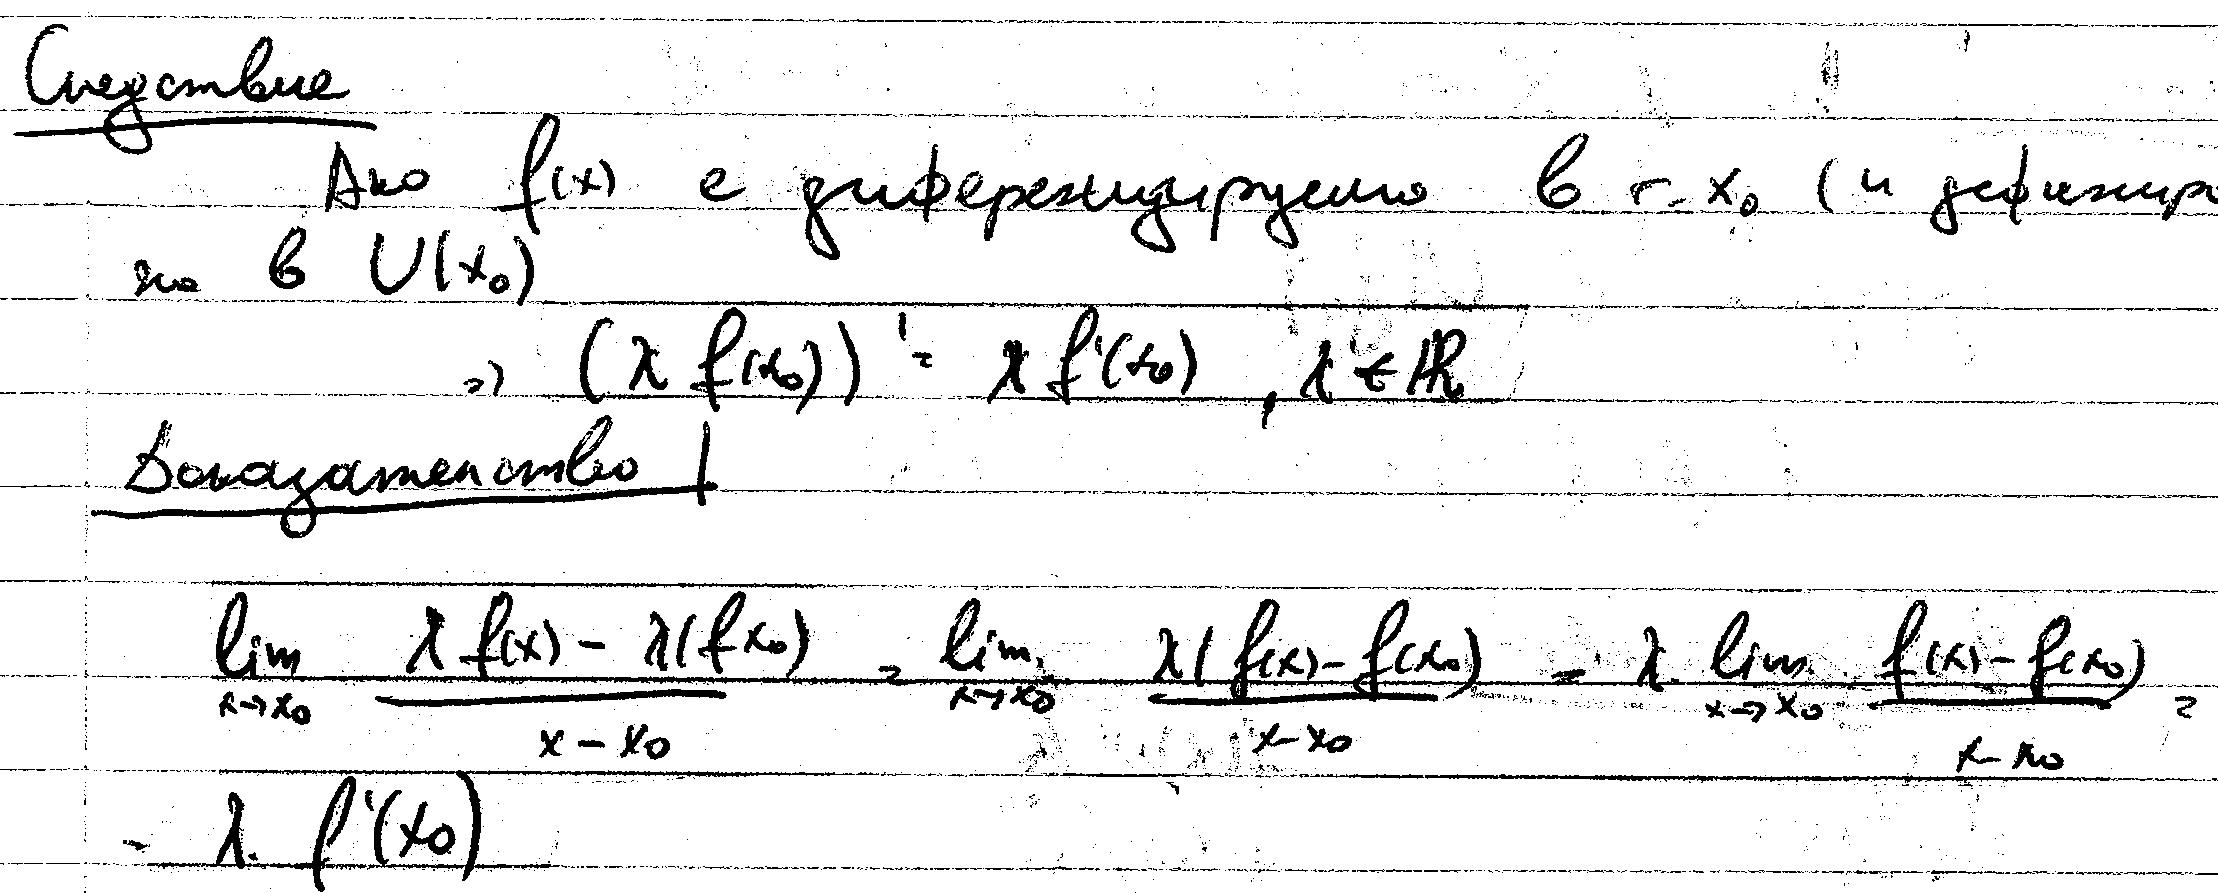 Следствие
Ако f(x) е диференцируемо в т. x₀ (и дефинир
на в U(x₀)
=> (λ f(x₀))' = λ f'(x₀) , λ ∈ ℝ
Доказателство
lim_{x→x₀} (λ f(x) - λ(f x₀)) / (x - x₀) = lim_{x→x₀} λ(f(x) - f(x₀)) / (x - x₀) = λ. lim_{x→x₀} (f(x) - f(x₀)) / (x - x₀) =
= λ. f'(x₀)